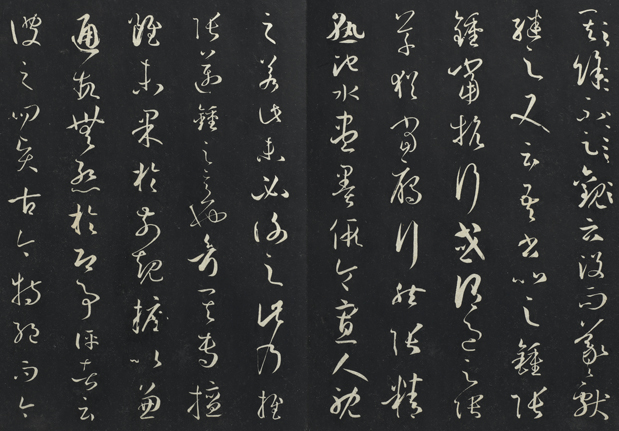 其餘不足觀云沒而羲獻
繼之又云吾書比之鍾張
鍾當抗行或謂過之張
草猶當雁行然張精
熟池水盡墨假令寡人耽
之若此未必謝之此乃推
張邁鍾之意也考其專擅
雖未果於前規摭以兼
通故無慚於即事評者云
彼之四賢古今特絕而今